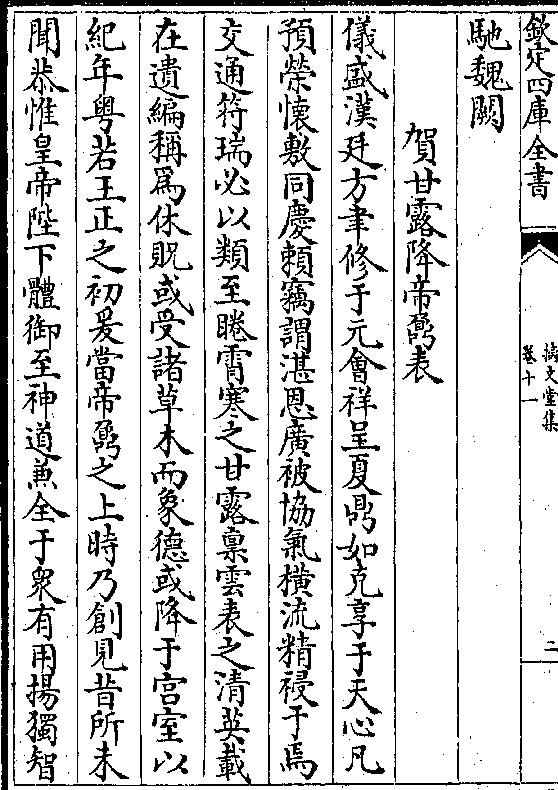 欽定四庫全書
摛文堂集
卷十一
二
馳魏闕
賀甘露降帝鼐表
儀盛漢廷方聿修于元會祥呈夏鼎如克享于天心凡
預榮懷敷同慶賴竊謂湛恩廣被協氣橫流精祲于焉
交通符瑞必以類至睠霄寒之甘露稟雲表之清英載
在遺編稱為休貺或受諸草木而象德或降于宫室以
紀年粤若王正之初爰當帝鼐之上時乃創見昔所未
聞恭惟皇帝陛下體御至神道兼全于衆有用揚獨智